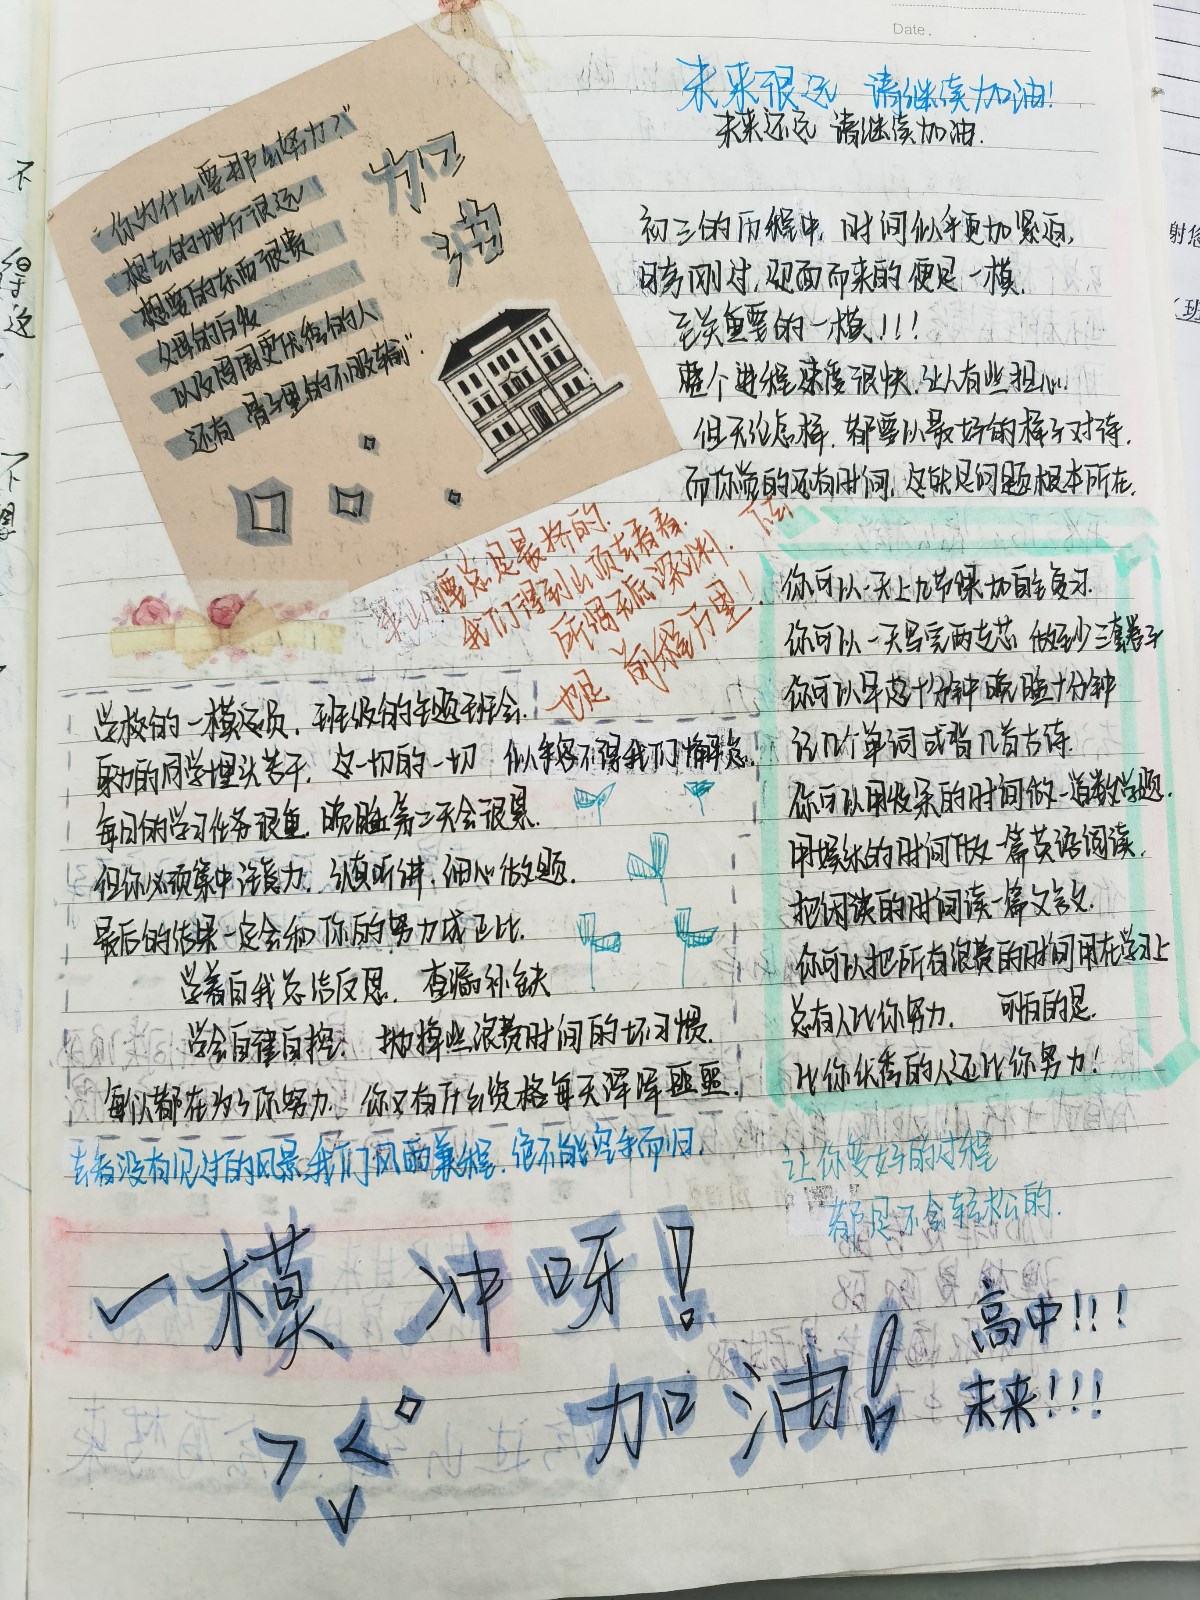 Date.
未来很远 请继续加油!
未来还远 请继续加油.
"你为什么要那么努力?"
想去的地方很远
想要的东西很贵
父母的白发
以及周围更优秀的人
还有 骨子里的不服输".
加
油
初三的历程中, 时间似乎更加紧迫,
月考刚过, 迎面而来的便是一模.
至关重要的一模!!!
整个进程速度很快, 让人有些担心.
但无论怎样, 都要以最好的样子对待.
而你觉的还有时间, 这就是问题根本所在.
总是最挤的.
我们得到山顶去看看.
所谓到底
也是 前程万里!
你可以一天上九节课加自主复习.
你可以一天写完两支芯, 做至少三套卷子
你可以早起十分钟 晚睡十分钟
记几个单词或背几首古诗.
你可以用收集的时间做一道数学题.
用娱乐的时间做一篇英语阅读.
把闲谈的时间读一篇文言文.
你可以把所有浪费的时间用在学习上
总有人比你努力. 可怕的是.
比你优秀的人还比你努力!
学校的一模动员, 班级的主题班会.
身边的同学埋头苦干, 这一切的一切 似乎容不得我们懈怠.
每日的学习任务很重, 晚睡第二天会很累.
但你必须集中注意力, 认真听讲, 细心做题.
最后的结果一定会和你的努力成正比.
学着自我总结反思, 查漏补缺
学会自律自控, 抛掉些浪费时间的坏习惯.
每人都在为了你努力, 你又有什么资格每天浑浑噩噩.
去看没有见过的风景, 我们风雨兼程, 便不能空手而归.
让你变好的过程
都是不会轻松的.
一模 冲呀!
加油!
高中!!!
未来!!!